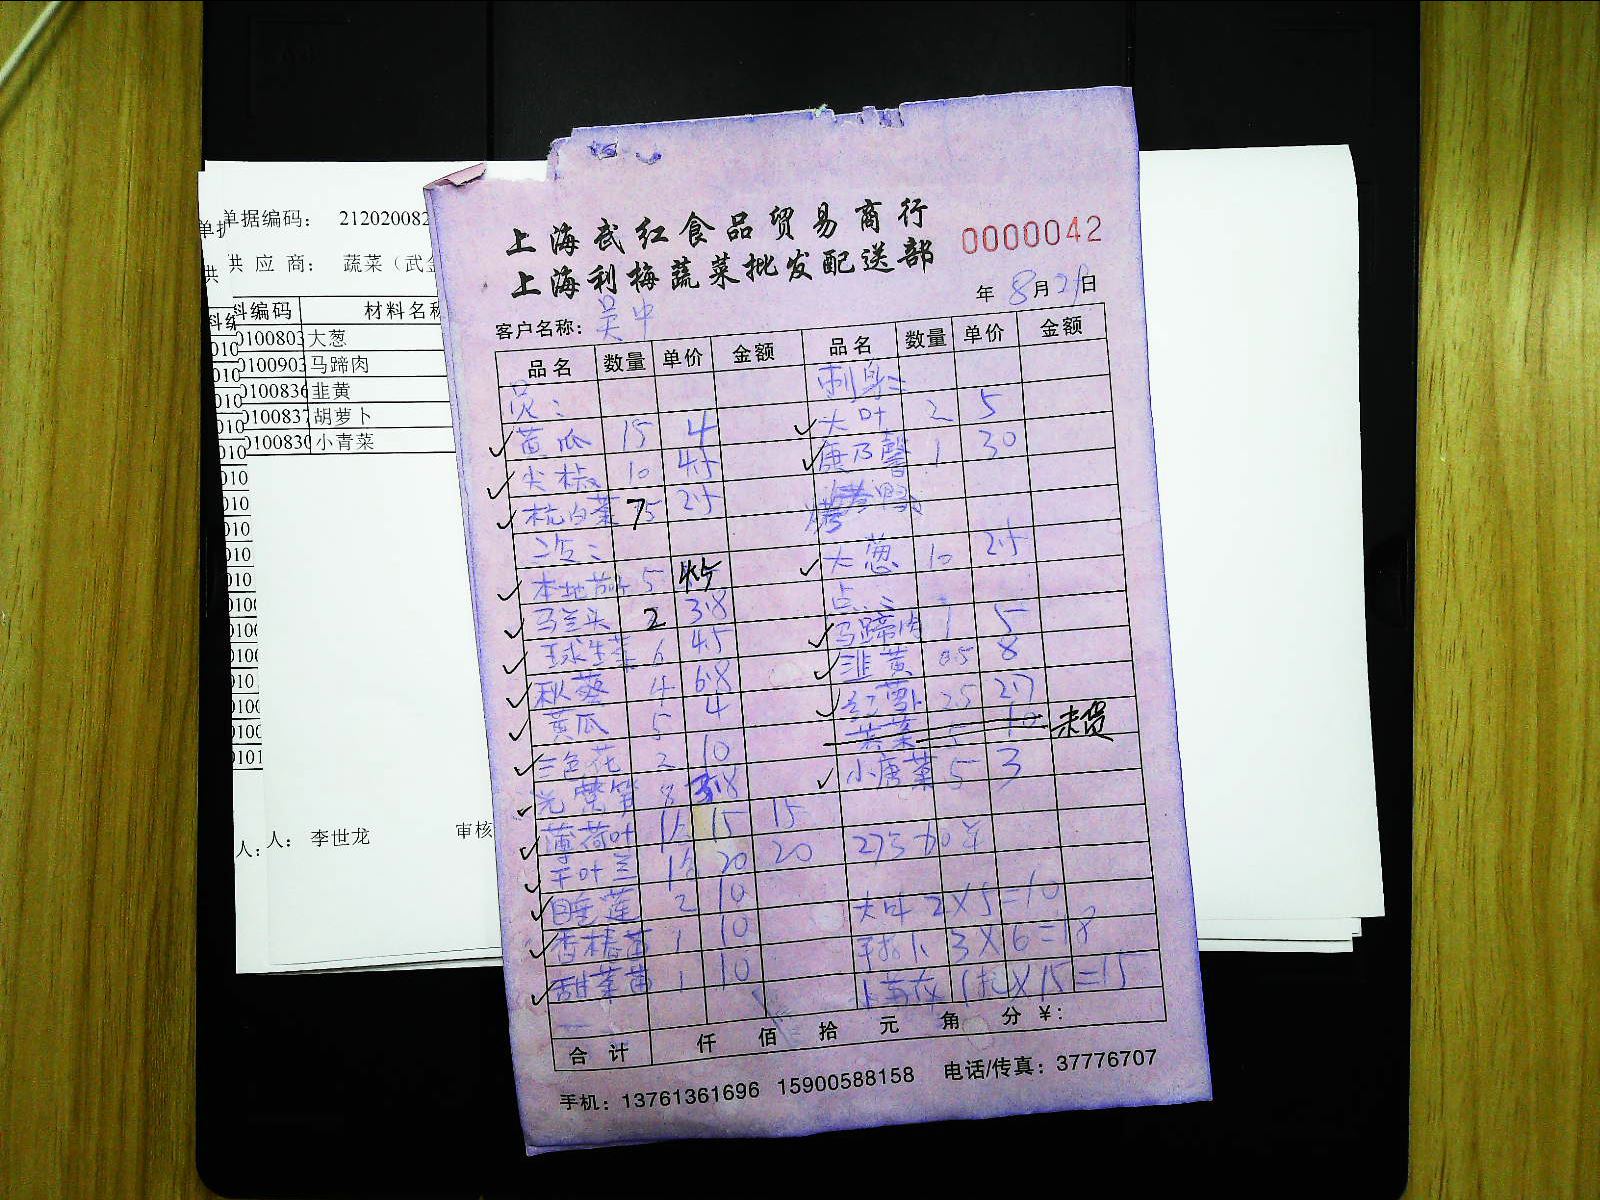 单据编码： 212020082
供 应 商： 蔬菜（武金
料编码 材料名称
0100803 大葱
0100903 马蹄肉
0100836 韭黄
0100837 胡萝卜
0100830 小青菜
人： 李世龙 审核
上海武红食品贸易商行
上海利梅蔬菜批发配送部
0000042
年 8月29日
客户名称：吴中
品名 数量 单价 金额 品名 数量 单价 金额
刺身：
黄瓜 15 4 大叶 2 5
尖椒 10 4.5 康乃馨 1 30
杭白菜 7 2.5
大葱 10 2.5
本地茄 5 4.5 点：
马兰头 2 3.8 马蹄肉 1 5
球生菜 6 4.5 韭黄 0.5 8
秋葵 4 6.8 红萝卜 2.5 2.7
黄瓜 5 4 未货
三色花 2 10 小唐菜 5 3
光莴笋 8 3.8
薄荷叶 15 15
千叶兰 20 20 27号加单
睡莲 2 10 大叶 2×5=10
香椿苗 1 10 3×6=18
甜菜苗 1 10 ×15=15
合 计 仟 佰 拾 元 角 分 ¥：
手机：13761361696 15900588158 电话/传真：37776707